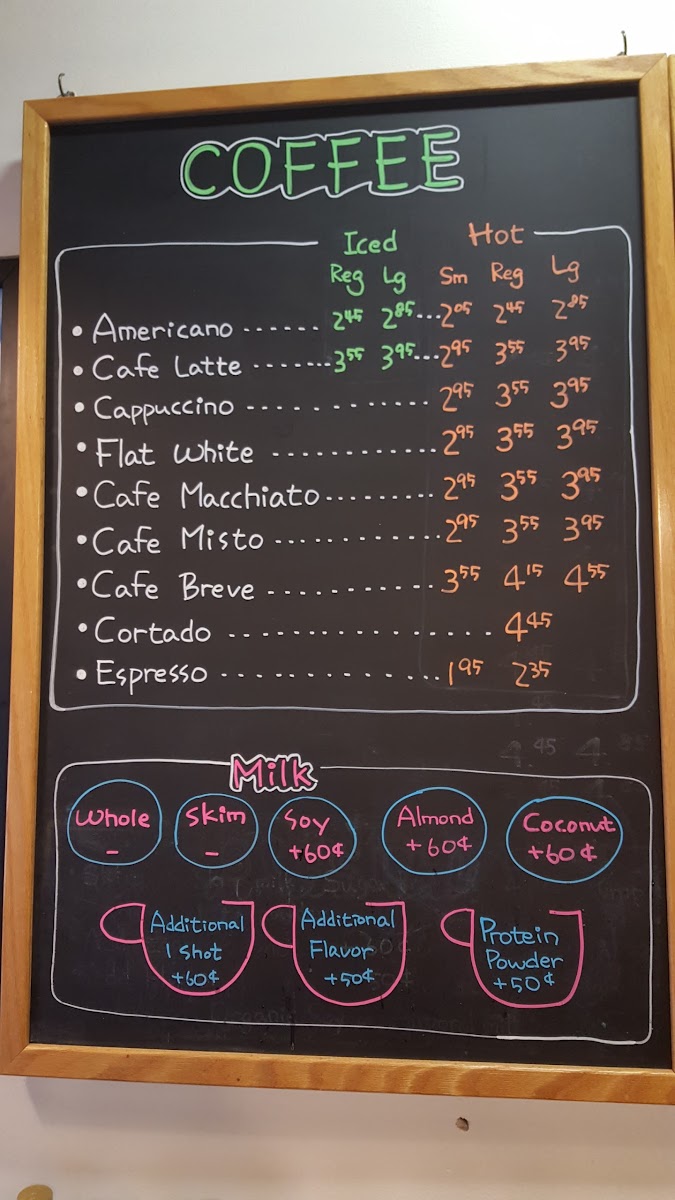 COFFEE
Iced Hot
Reg Lg Sm Reg Lg
• Americano ...... 2.45 2.85 ... 2.05 2.45 2.85
• Cafe Latte ....... 3.55 3.95 ... 2.95 3.55 3.95
• Cappuccino ............ 2.95 3.55 3.95
• Flat White ............ 2.95 3.55 3.95
• Cafe Macchiato ........ 2.95 3.55 3.95
• Cafe Misto ............ 2.95 3.55 3.95
• Cafe Breve ............ 3.55 4.15 4.55
• Cortado ................ 4.45
• Espresso ............. 1.95 2.35
Milk
Whole Skim Soy Almond Coconut
- - +60¢ +60¢ +60¢
Additional Additional Protein
1 Shot Flavor Powder
+60¢ +50¢ +50¢